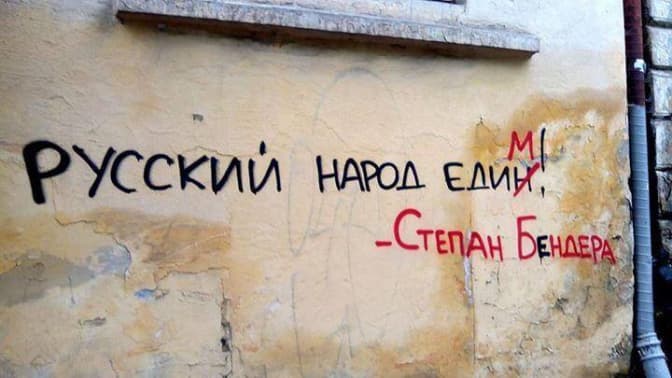 М
РУССКИЙ НАРОД ЕДИН!
-СТЕПАН БЕНДЕРА